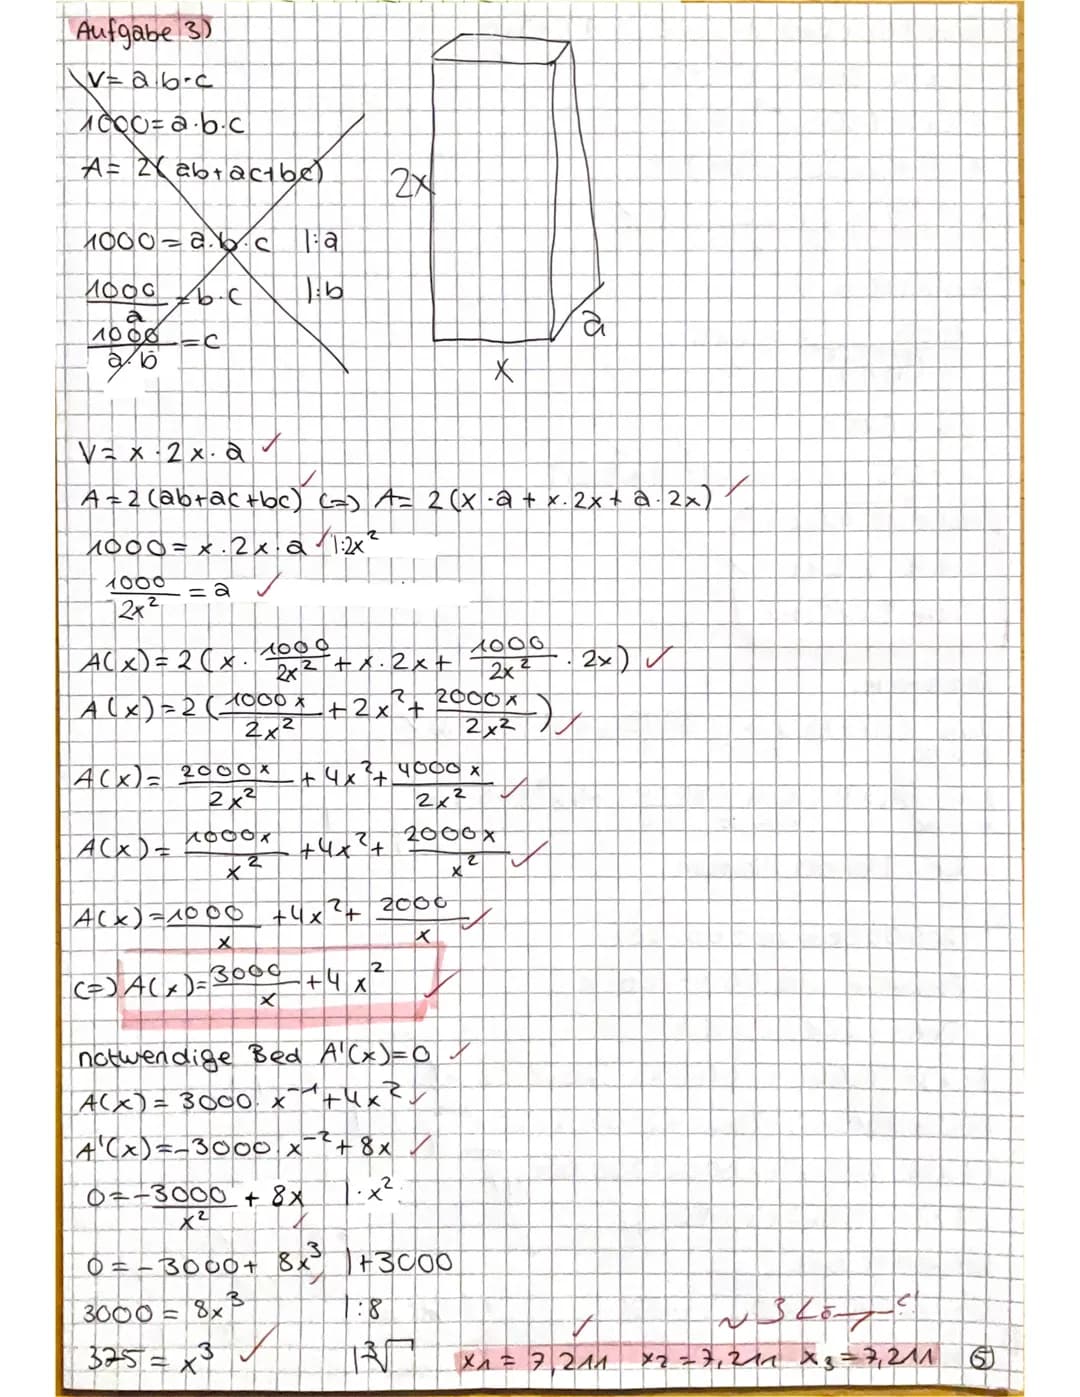 Aufgabe 3)
V= a·b·c
1000= a·b·c
A= 2(ab+ac+bc)
1000= a·b·c |:a
1000/a = b·c |:b
1000/a·b = c
2x
a
x
V= x·2x·a ✓
A=2(ab+ac+bc) ✓ (=) A= 2(x·a + x·2x + a·2x) ✓
1000= x·2x·a ✓ |:2x²
1000/2x² = a ✓
A(x)=2(x·1000/2x² + x·2x + 1000/2x² · 2x) ✓
A(x)=2(1000x/2x² + 2x² + 2000x/2x²) ✓
A(x)= 2000x/2x² + 4x² + 4000x/2x² ✓
A(x)= 1000x/x² + 4x² + 2000x/x² ✓
A(x)= 1000/x + 4x² + 2000/x ✓
(=) A(x)= 3000/x + 4x² ✓
notwendige Bed A'(x)=0 ✓
A(x) = 3000·x⁻¹+4x² ✓
A'(x)=-3000·x⁻²+8x ✓
0=-3000/x² + 8x |·x²
0=-3000+ 8x³ |+3000
3000 = 8x³ |:8
375 = x³ ✓ |³√
x₁ = 7,211 ✓ x₂=7,211 x₃=7,211 ⑤